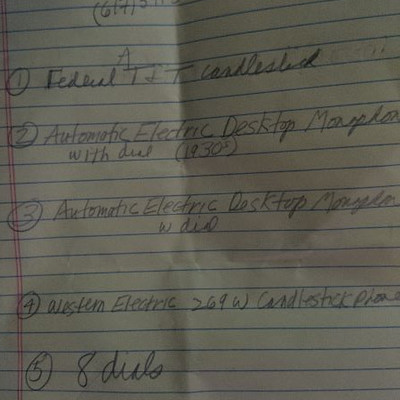 (617)
A
① Federal T & T candlestick
② Automatic Electric Desktop Monophon
with dial (1930s)
③ Automatic Electric Desktop Monophon
w dial
④ Western Electric 269W Candlestick phone
⑤ 8 dials